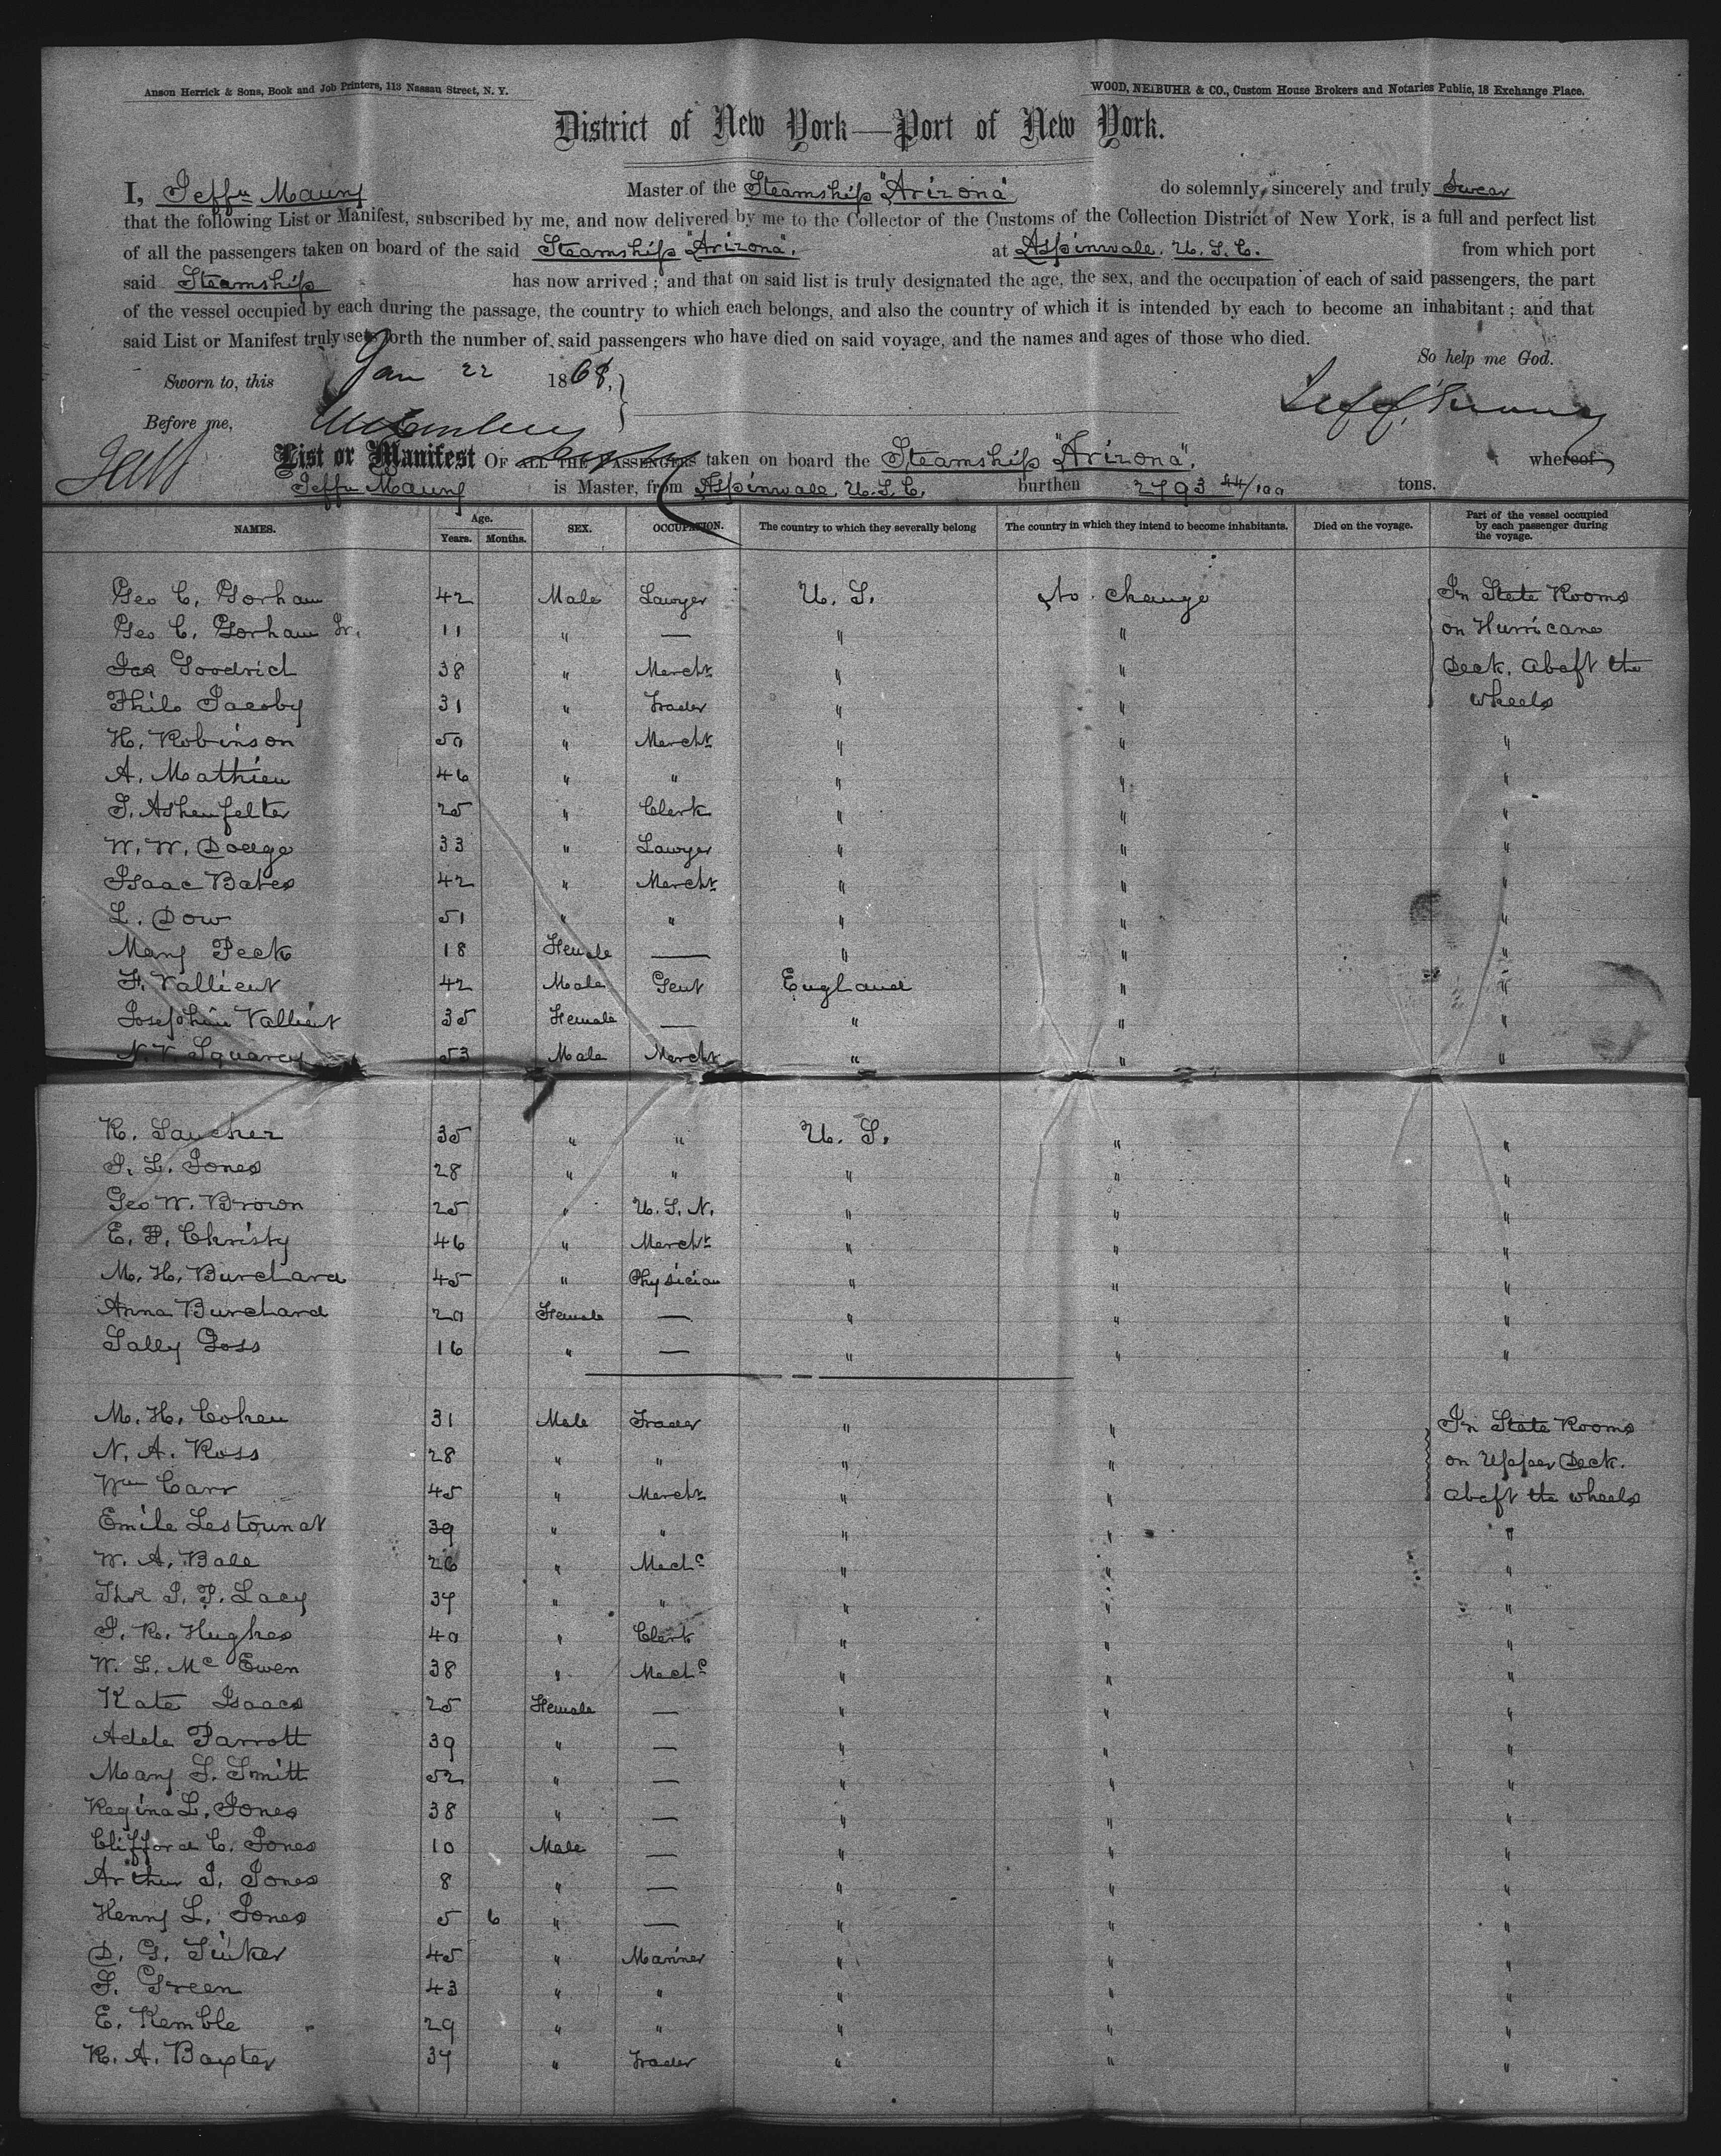 Anson Herrick & Sons, Book and Job Printers, 113 Nassau Street, N. Y.
WOOD, NEIBUHR & CO., Custom House Brokers and Notaries Public, 18 Exchange Place.
District of New York—Port of New York.
I, Jeffn Maury Master of the Steamship "Arizona" do solemnly, sincerely and truly Swear
that the following List or Manifest, subscribed by me, and now delivered by me to the Collector of the Customs of the Collection District of New York, is a full and perfect list
of all the passengers taken on board of the said Steamship "Arizona". at Aspinwale. U. S. C. from which port
said Steamship has now arrived; and that on said list is truly designated the age, the sex, and the occupation of each of said passengers, the part
of the vessel occupied by each during the passage, the country to which each belongs, and also the country of which it is intended by each to become an inhabitant; and that
said List or Manifest truly sets forth the number of said passengers who have died on said voyage, and the names and ages of those who died.
So help me God.
Sworn to, this Jan 22 1868,
Jeff Maury
Before me,
List or Manifest OF ALL THE PASSENGERS taken on board the Steamship "Arizona". whereof
Jeffn Maury is Master, from Aspinwale, U. S. C. burthen 2793 44/100 tons.
NAMES. Age. Years. Months. SEX. OCCUPATION. The country to which they severally belong The country in which they intend to become inhabitants. Died on the voyage. Part of the vessel occupied by each passenger during the voyage.
Geo C. Gorham 42 Male Lawyer U. S. No change In State Rooms
Geo C. Gorham Jr. 11 " — " " on Hurricane
Jas Goodrich 38 " Mercht " " Deck. abaft the
Philo Jacoby 31 " Trader " " wheels
H. Robinson 50 " Mercht " " "
A. Mathieu 46 " " " " "
S. Ashenfelter 25 " Clerk " " "
W. W. Dodge 33 " Lawyer " " "
Isaac Bates 42 " Mercht " " "
L. Dow 51 " " " " "
Mary Peck 18 Female — " " "
F. Vallient 42 Male Gent England " "
Josephin Vallient 35 Female — " " "
N. V. Squarey 53 Male Mercht " " "
R. Saucher 35 " " U. S. " "
S. L. Jones 28 " " " " "
Geo W. Brown 25 " U. S. N. " " "
E. P. Christy 46 " Mercht " " "
M. H. Burchard 45 " Physician " " "
Anna Burchard 20 Female — " " "
Sally Goss 16 " — " " "
M. H. Cohen 31 Male Trader " " In State Rooms
N. A. Ross 28 " " " " on Upper Deck.
Wm Carr 45 " Mercht " " abaft the wheels
Emile Lestounat 39 " " " " "
W. A. Bale 26 " Mechc " " "
Thos S. P. Lacy 37 " " " " "
J. R. Hughes 40 " Clerk " " "
W. L. Mc Ewen 38 " Mechc " " "
Kate Isaacs 25 Female — " " "
Adele Parrott 39 " — " " "
Mary S. Smitt 52 " — " " "
Regina L. Jones 38 " — " " "
Clifford C. Jones 10 Male — " " "
Arthur J. Jones 8 " — " " "
Henny L. Jones 5 6 " — " " "
D. G. Tinker 45 " Mariner " " "
S. Green 43 " " " " "
E. Kemble 29 " " " " "
R. A. Baxter 37 " Trader " " "